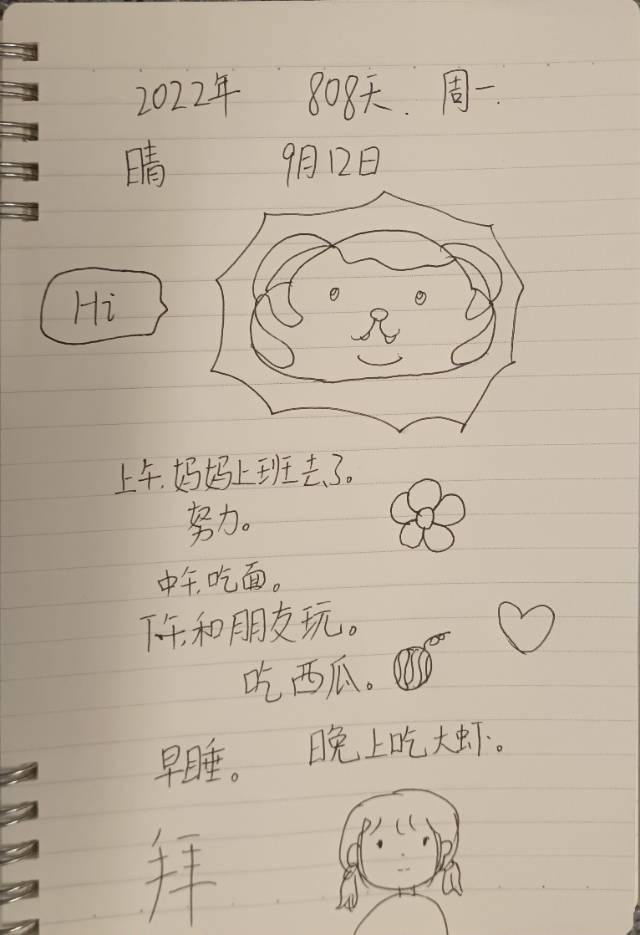 2022年 808天. 周一.
晴 9月12日
Hi
上午,妈妈上班去了。
努力。
中午,吃面。
下午,和朋友玩。
吃西瓜。
早睡。 晚上吃大虾。
拜